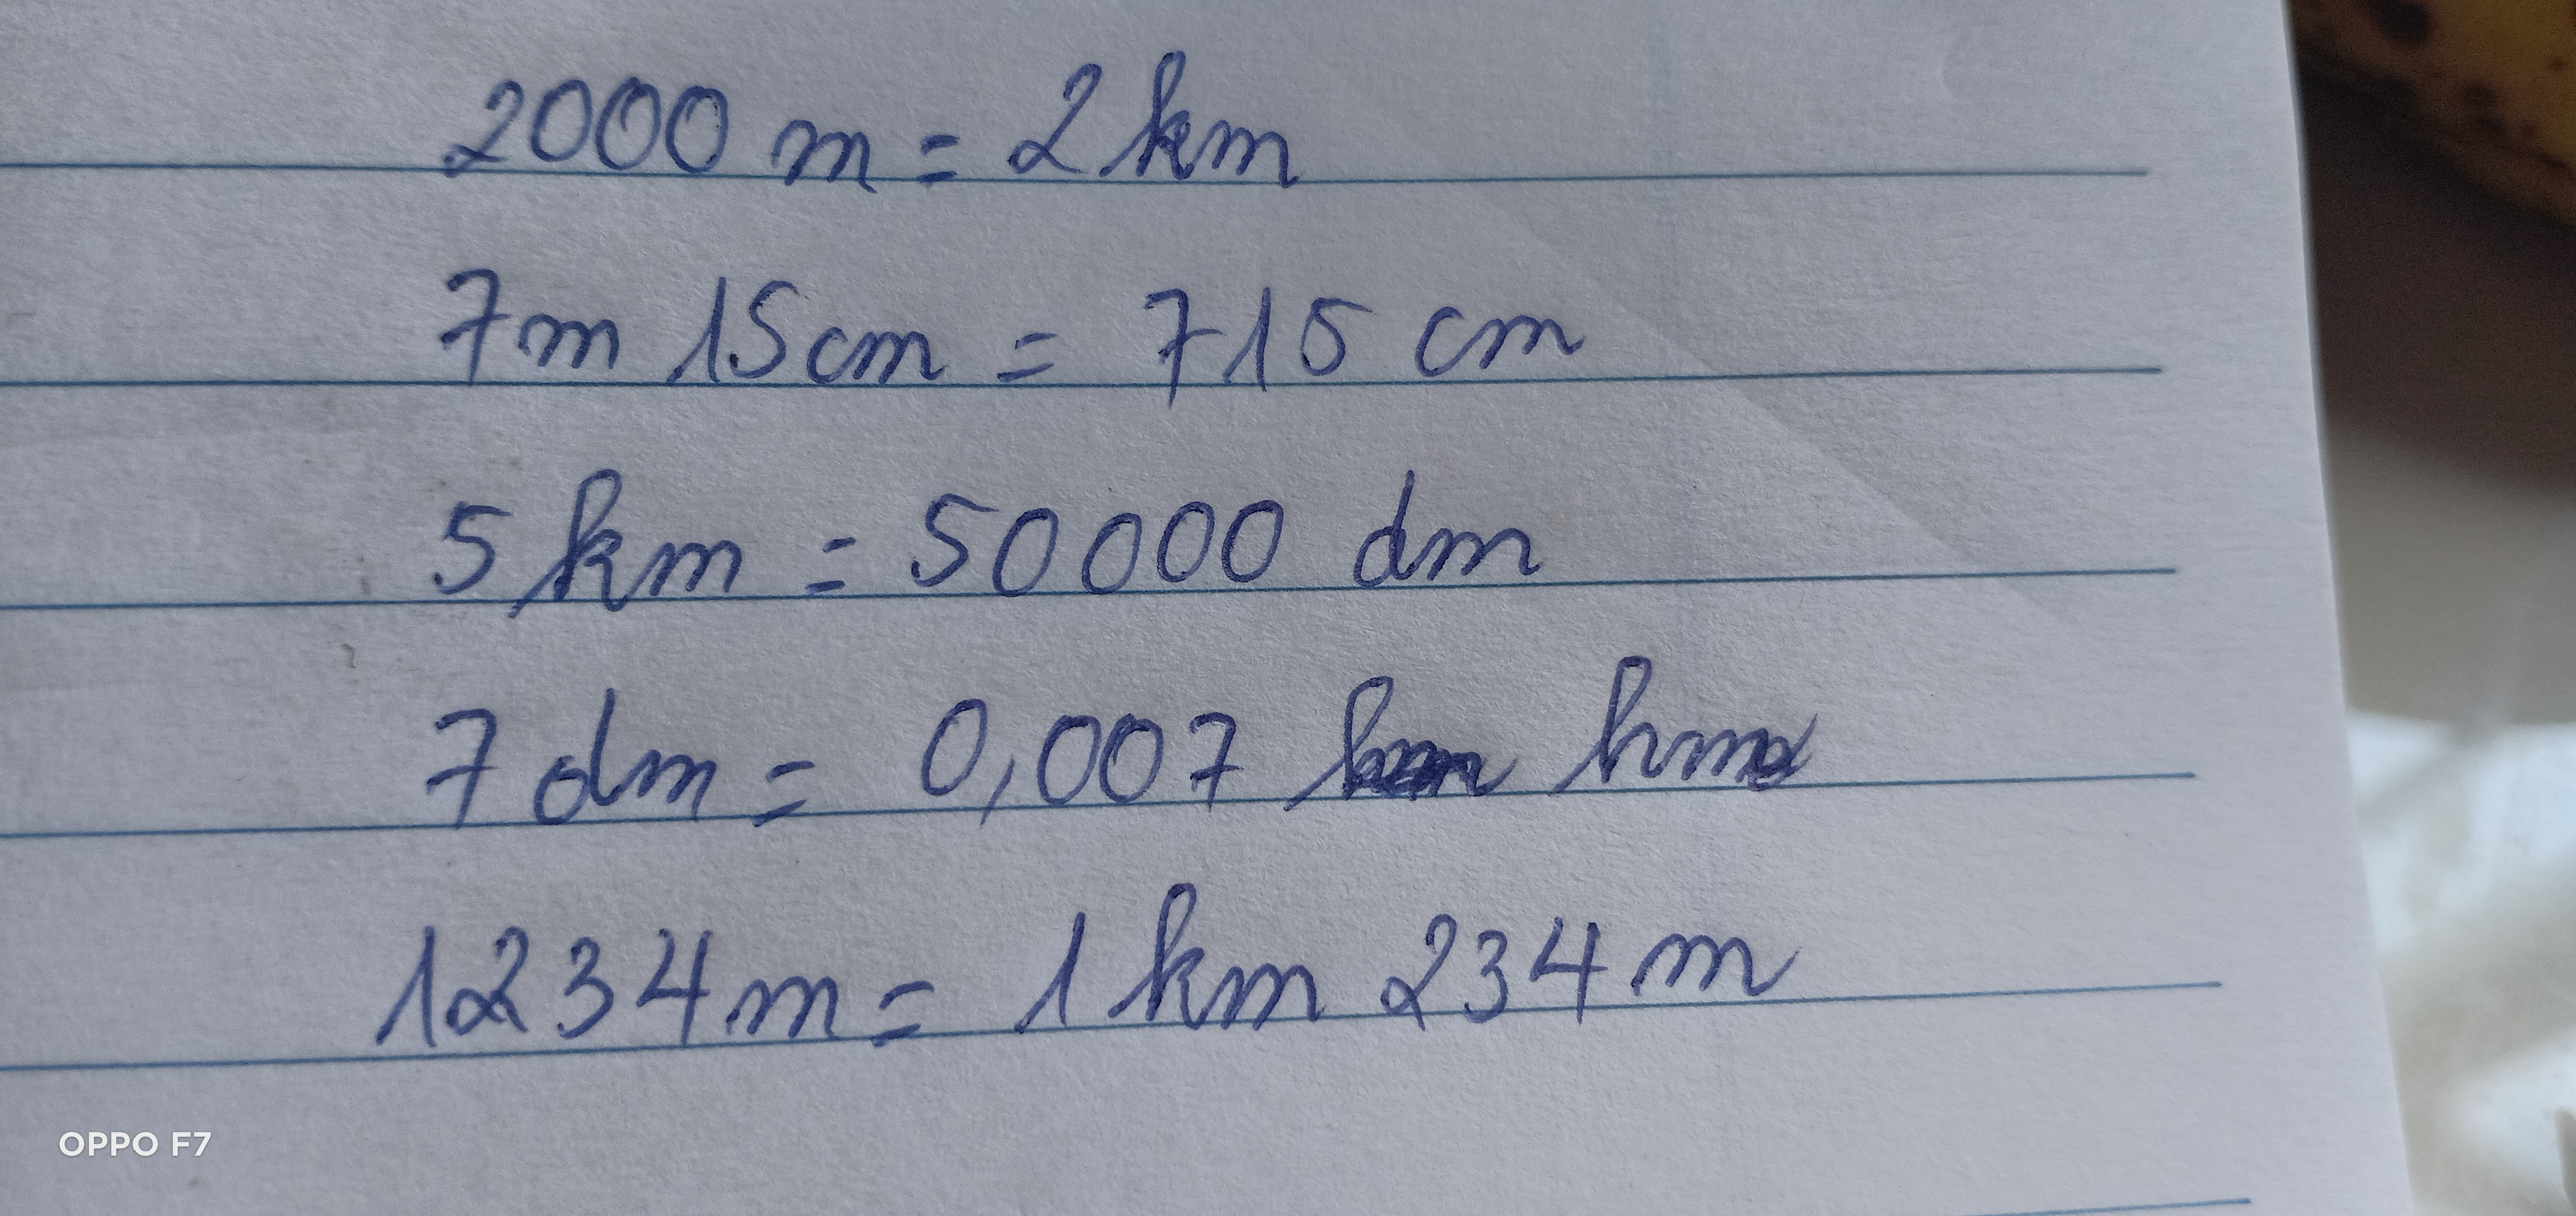 2000 m = 2 km
7m 15cm = 715 cm
5 km = 50000 dm
7 dm = 0,007 hm
1234m = 1 km 234 m
OPPO F7